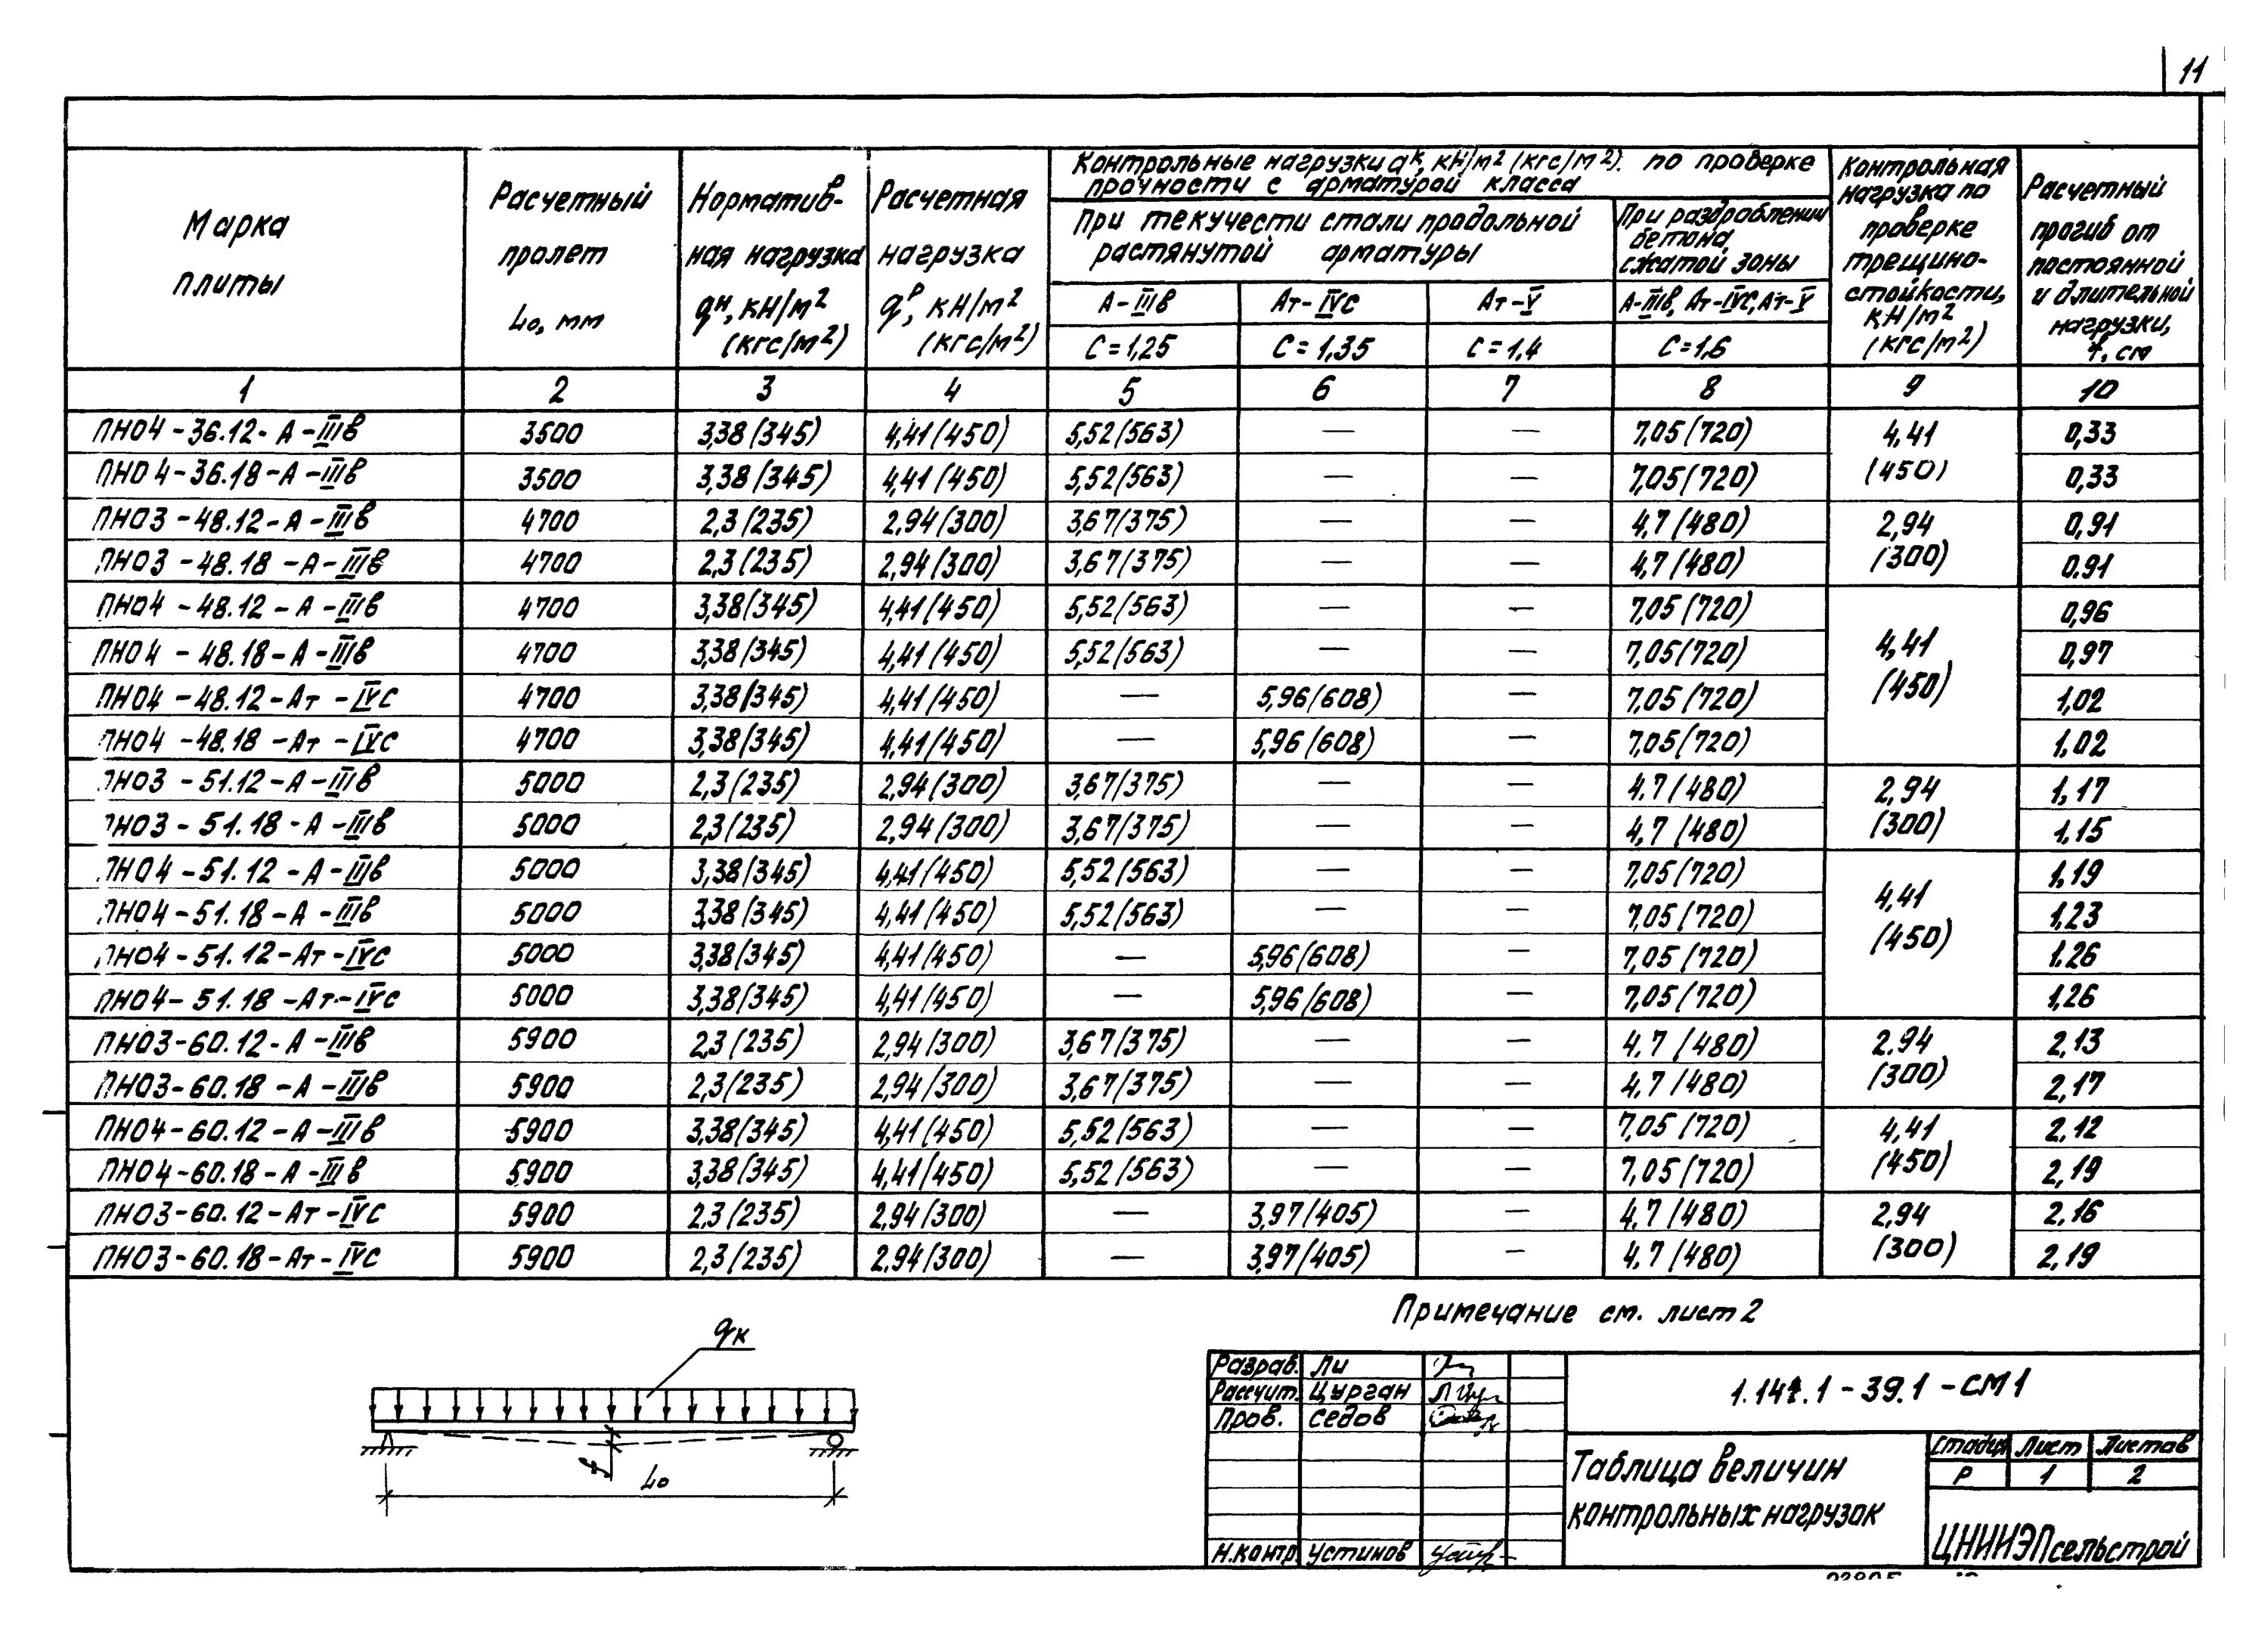 11
Марка плиты
Расчетный пролет Lо, мм
Норматив-ная нагрузка qн, кН/м2 (кгс/м2)
Расчетная нагрузка qр, кН/м2 (кгс/м2)
Контрольные нагрузки qк, кН/м2 (кгс/м2). по проверке прочности с арматурой класса
При текучести стали продольной растянутой арматуры
При раздроблении бетона сжатой зоны
Контрольная нагрузка по проверке трещино-стойкости, кН/м2 (кгс/м2)
Расчетный прогиб от постоянной и длительной нагрузки, f, см
А-IIIв Ат-IVС Ат-V А-IIIв, Ат-IVС, Ат-V
С=1,25 С=1,35 С=1,4 С=1,6
1 2 3 4 5 6 7 8 9 10
ПНО4-36.12-А-IIIв 3500 3,38(345) 4,41(450) 5,52(563) — — 7,05(720) 4,41 0,33
ПНО4-36.18-А-IIIв 3500 3,38(345) 4,41(450) 5,52(563) — — 7,05(720) (450) 0,33
ПНО3-48.12-А-IIIв 4700 2,3(235) 2,94(300) 3,67(375) — — 4,7(480) 2,94 0,91
ПНО3-48.18-А-IIIв 4700 2,3(235) 2,94(300) 3,67(375) — — 4,7(480) (300) 0.91
ПНО4-48.12-А-IIIв 4700 3,38(345) 4,41(450) 5,52(563) — — 7,05(720) 0,96
ПНО4-48.18-А-IIIв 4700 3,38(345) 4,41(450) 5,52(563) — — 7,05(720) 4,41 0,97
ПНО4-48.12-Ат-IVС 4700 3,38(345) 4,41(450) — 5,96(608) — 7,05(720) (450) 1,02
ПНО4-48.18-Ат-IVС 4700 3,38(345) 4,41(450) — 5,96(608) — 7,05(720) 1,02
ПНО3-51.12-А-IIIв 5000 2,3(235) 2,94(300) 3,67(375) — — 4.7(480) 2,94 1,17
ПНО3-51.18-А-IIIв 5000 2,3(235) 2,94(300) 3,67(375) — — 4,7(480) (300) 1,15
ПНО4-51.12-А-IIIв 5000 3,38(345) 4,41(450) 5,52(563) — — 7,05(720) 1,19
ПНО4-51.18-А-IIIв 5000 3,38(345) 4,41(450) 5,52(563) — — 7,05(720) 4,41 1,23
ПНО4-51.12-Ат-IVС 5000 3,38(345) 4,41(450) — 5,96(608) — 7,05(720) (450) 1.26
ПНО4-51.18-Ат-IVС 5000 3,38(345) 4,41(450) — 5,96(608) — 7,05(720) 1,26
ПНО3-60.12-А-IIIв 5900 2,3(235) 2,94(300) 3,67(375) — — 4.7(480) 2.94 2,13
ПНО3-60.18-А-IIIв 5900 2,3(235) 2,94(300) 3,67(375) — — 4,7(480) (300) 2,17
ПНО4-60.12-А-IIIв 5900 3,38(345) 4,41(450) 5,52(563) — — 7,05(720) 4,41 2,12
ПНО4-60.18-А-IIIв 5900 3,38(345) 4,41(450) 5,52(563) — — 7,05(720) (450) 2,19
ПНО3-60.12-Ат-IVС 5900 2,3(235) 2,94(300) — 3,97(405) — 4,7(480) 2,94 2,16
ПНО3-60.18-Ат-IVС 5900 2,3(235) 2.94(300) — 3,97(405) — 4,7(480) (300) 2,19
Примечание см. лист 2
qк
f
Lо
Разраб. Ли
Рассчит. Цурган
Пров. Седов
Н.контр. Устинов
1.141.1-39.1-СМ1
Таблица величин
контрольных нагрузок
Стадия Лист Листов
Р 1 2
ЦНИИЭПсельстрой